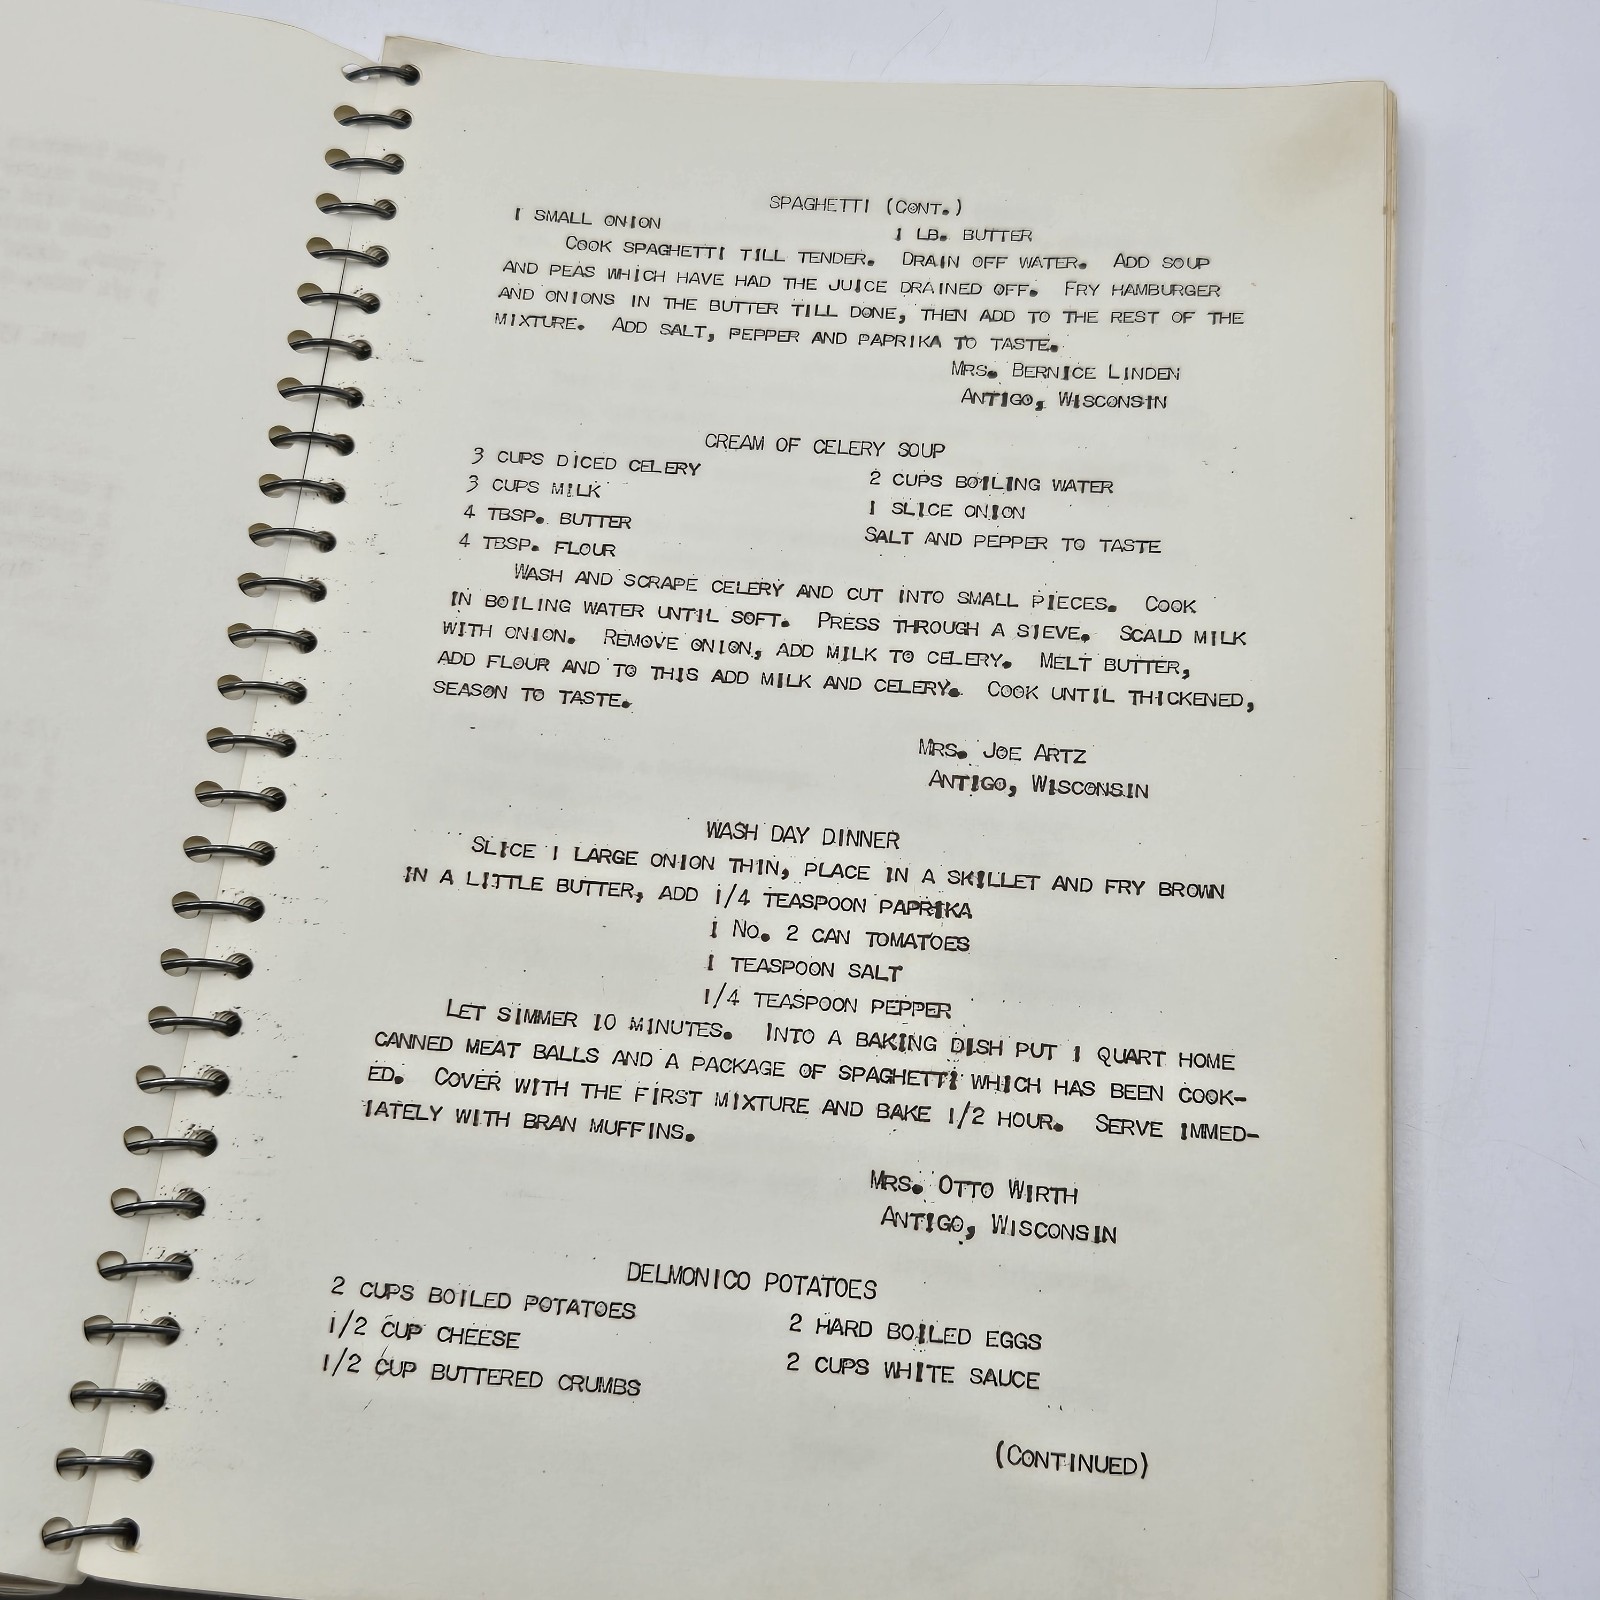 SPAGHETTI (CONT.)
1 SMALL ONION 1 LB. BUTTER
COOK SPAGHETTI TILL TENDER. DRAIN OFF WATER. ADD SOUP
AND PEAS WHICH HAVE HAD THE JUICE DRAINED OFF. FRY HAMBURGER
AND ONIONS IN THE BUTTER TILL DONE, THEN ADD TO THE REST OF THE
MIXTURE. ADD SALT, PEPPER AND PAPRIKA TO TASTE.
MRS. BERNICE LINDEN
ANTIGO, WISCONSIN
CREAM OF CELERY SOUP
3 CUPS DICED CELERY 2 CUPS BOILING WATER
3 CUPS MILK 1 SLICE ONION
4 TBSP. BUTTER SALT AND PEPPER TO TASTE
4 TBSP. FLOUR
WASH AND SCRAPE CELERY AND CUT INTO SMALL PIECES. COOK
IN BOILING WATER UNTIL SOFT. PRESS THROUGH A SIEVE. SCALD MILK
WITH ONION. REMOVE ONION, ADD MILK TO CELERY. MELT BUTTER,
ADD FLOUR AND TO THIS ADD MILK AND CELERY. COOK UNTIL THICKENED,
SEASON TO TASTE.
MRS. JOE ARTZ
ANTIGO, WISCONSIN
WASH DAY DINNER
SLICE 1 LARGE ONION THIN, PLACE IN A SKILLET AND FRY BROWN
IN A LITTLE BUTTER, ADD 1/4 TEASPOON PAPRIKA
1 NO. 2 CAN TOMATOES
1 TEASPOON SALT
1/4 TEASPOON PEPPER
LET SIMMER 10 MINUTES. INTO A BAKING DISH PUT 1 QUART HOME
CANNED MEAT BALLS AND A PACKAGE OF SPAGHETTI WHICH HAS BEEN COOK-
ED. COVER WITH THE FIRST MIXTURE AND BAKE 1/2 HOUR. SERVE IMMED-
IATELY WITH BRAN MUFFINS.
MRS. OTTO WIRTH
ANTIGO, WISCONSIN
DELMONICO POTATOES
2 CUPS BOILED POTATOES 2 HARD BOILED EGGS
1/2 CUP CHEESE 2 CUPS WHITE SAUCE
1/2 CUP BUTTERED CRUMBS
(CONTINUED)